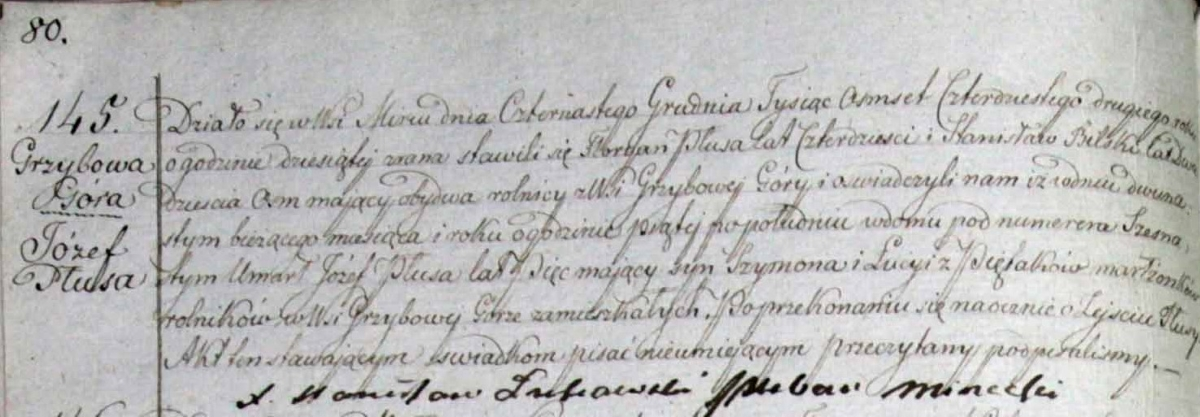 80.
145.
Grzybowa
Góra
Józef
Płusa
Działo się w Wsi Mircu dnia Czternastego Grudnia Tysiąc Osmset Czterdziestego drugiego roku
o godzinie dziesiątej zrana stawili się Floryan Płusa lat Czterdziesci i Stanisław Bilski lat dwa
dziescia Osm mający obydwa rolnicy z Wsi Grzybowej Góry i oswiadczyli nam iż w dniu dwuna
stym bieżącego miesiąca i roku o godzinie piątej po południu w domu pod numerem Szesna
stym Umarł Józef Płusa lat Pięc mający syn Szymona i Lucyi z Piętaków małżonków
rolników w Wsi Grzybowej Gorze zamieszkałych. Po przekonaniu się naocznie o Zejściu Płusy
Akt ten stawającym swiadkom pisać nieumiejącym przeczytany podpisalismy. —
X. Stanisław pleban Mirecki